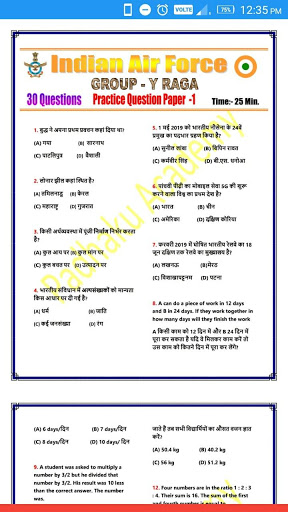 VOLTE 75% 12:35 PM
Indian Air Force
GROUP - Y RAGA
30 Questions Practice Question Paper -1 Time:- 25 Min.
1. बुद्ध ने अपना प्रथम प्रवचन कहां दिया था?
(A) गया (B) सारनाथ
(C) पाटलिपुत्र (D) वैशाली
2. लोनार झील कहां स्थित है?
(A) तमिलनाडु (B) केरल
(C) महाराष्ट्र (D) गुजरात
3. किसी अर्थव्यवस्था में पूंजी निर्माण निर्भर करता है?
(A) कुल आय पर (B) कुल मांग पर
(C) कुल बचत पर (D) उत्पादन पर
4. भारतीय संविधान में अल्पसंख्यकों को मान्यता
किस आधार पर दी गई है?
(A) धर्म (B) जाति
(C) कई जनसंख्या (D) रंग
5. 1 मई 2019 को भारतीय नौसेना के 24वें
प्रमुख का पदभार ग्रहण किया है?
(A) सुनील लांबा (B) बिपिन रावत
(C) कर्मवीर सिंह (D) बी.एस. धनोआ
6. पांचवी पीढ़ी का मोबाइल सेवा 5G की शुरू
करने वाला विश्व का प्रथम देश है?
(A) भारत (B) चीन
(C) अमेरिका (D) दक्षिण कोरिया
7. फरवरी 2019 में घोषित भारतीय रेलवे का 18
जून दक्षिण तक रेलवे का मुख्यालय है?
(A) लखनऊ (B) मेरठ
(C) विशाखापट्टनम (D) पटना
8. A can do a piece of work in 12 days
and B in 24 days. If they work together in
how many days will they finish the work
A किसी काम को 12 दिन में और B 24 दिन में
पूरा कर सकता है यदि वे मिलकर काम करें तो
उस काम को कितने दिन में पूरा कर लेंगे?
Padhaku Academy
(A) 6 days/दिन (B) 7 days/दिन
(C) 8 days/दिन (D) 10 days/ दिन
9. A student was asked to multiply a
number by 3/2 but he divided that
number by 3/2. His result was 10 less
than the correct answer. The number
was.
जाते हैं तब सभी विद्यार्थियों का औसत वजन ज्ञात
करें?
(A) 50.4 kg (B) 40.2 kg
(C) 56 kg (D) 51.2 kg
12. Four numbers are in the ratio 1 : 2 : 3
: 4. Their sum is 16. The sum of the first
and fourth number is equal to